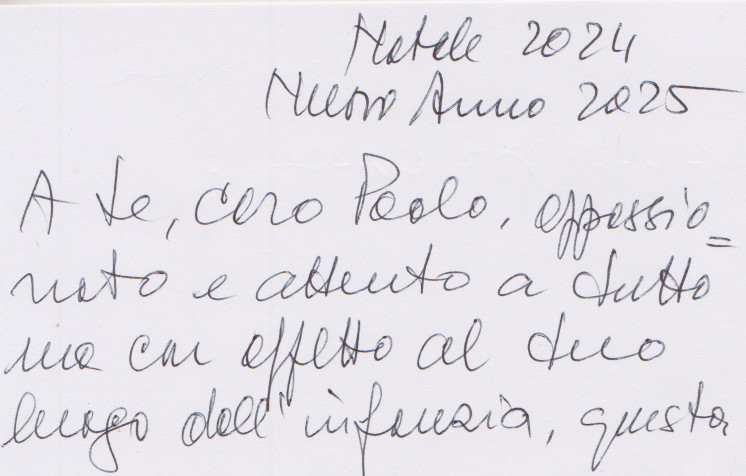 Natale 2024
Nuovo Anno 2025
A te, caro Paolo, appassio=
nato e attento a tutto
ma con affetto al tuo
luogo dell'infanzia, questa